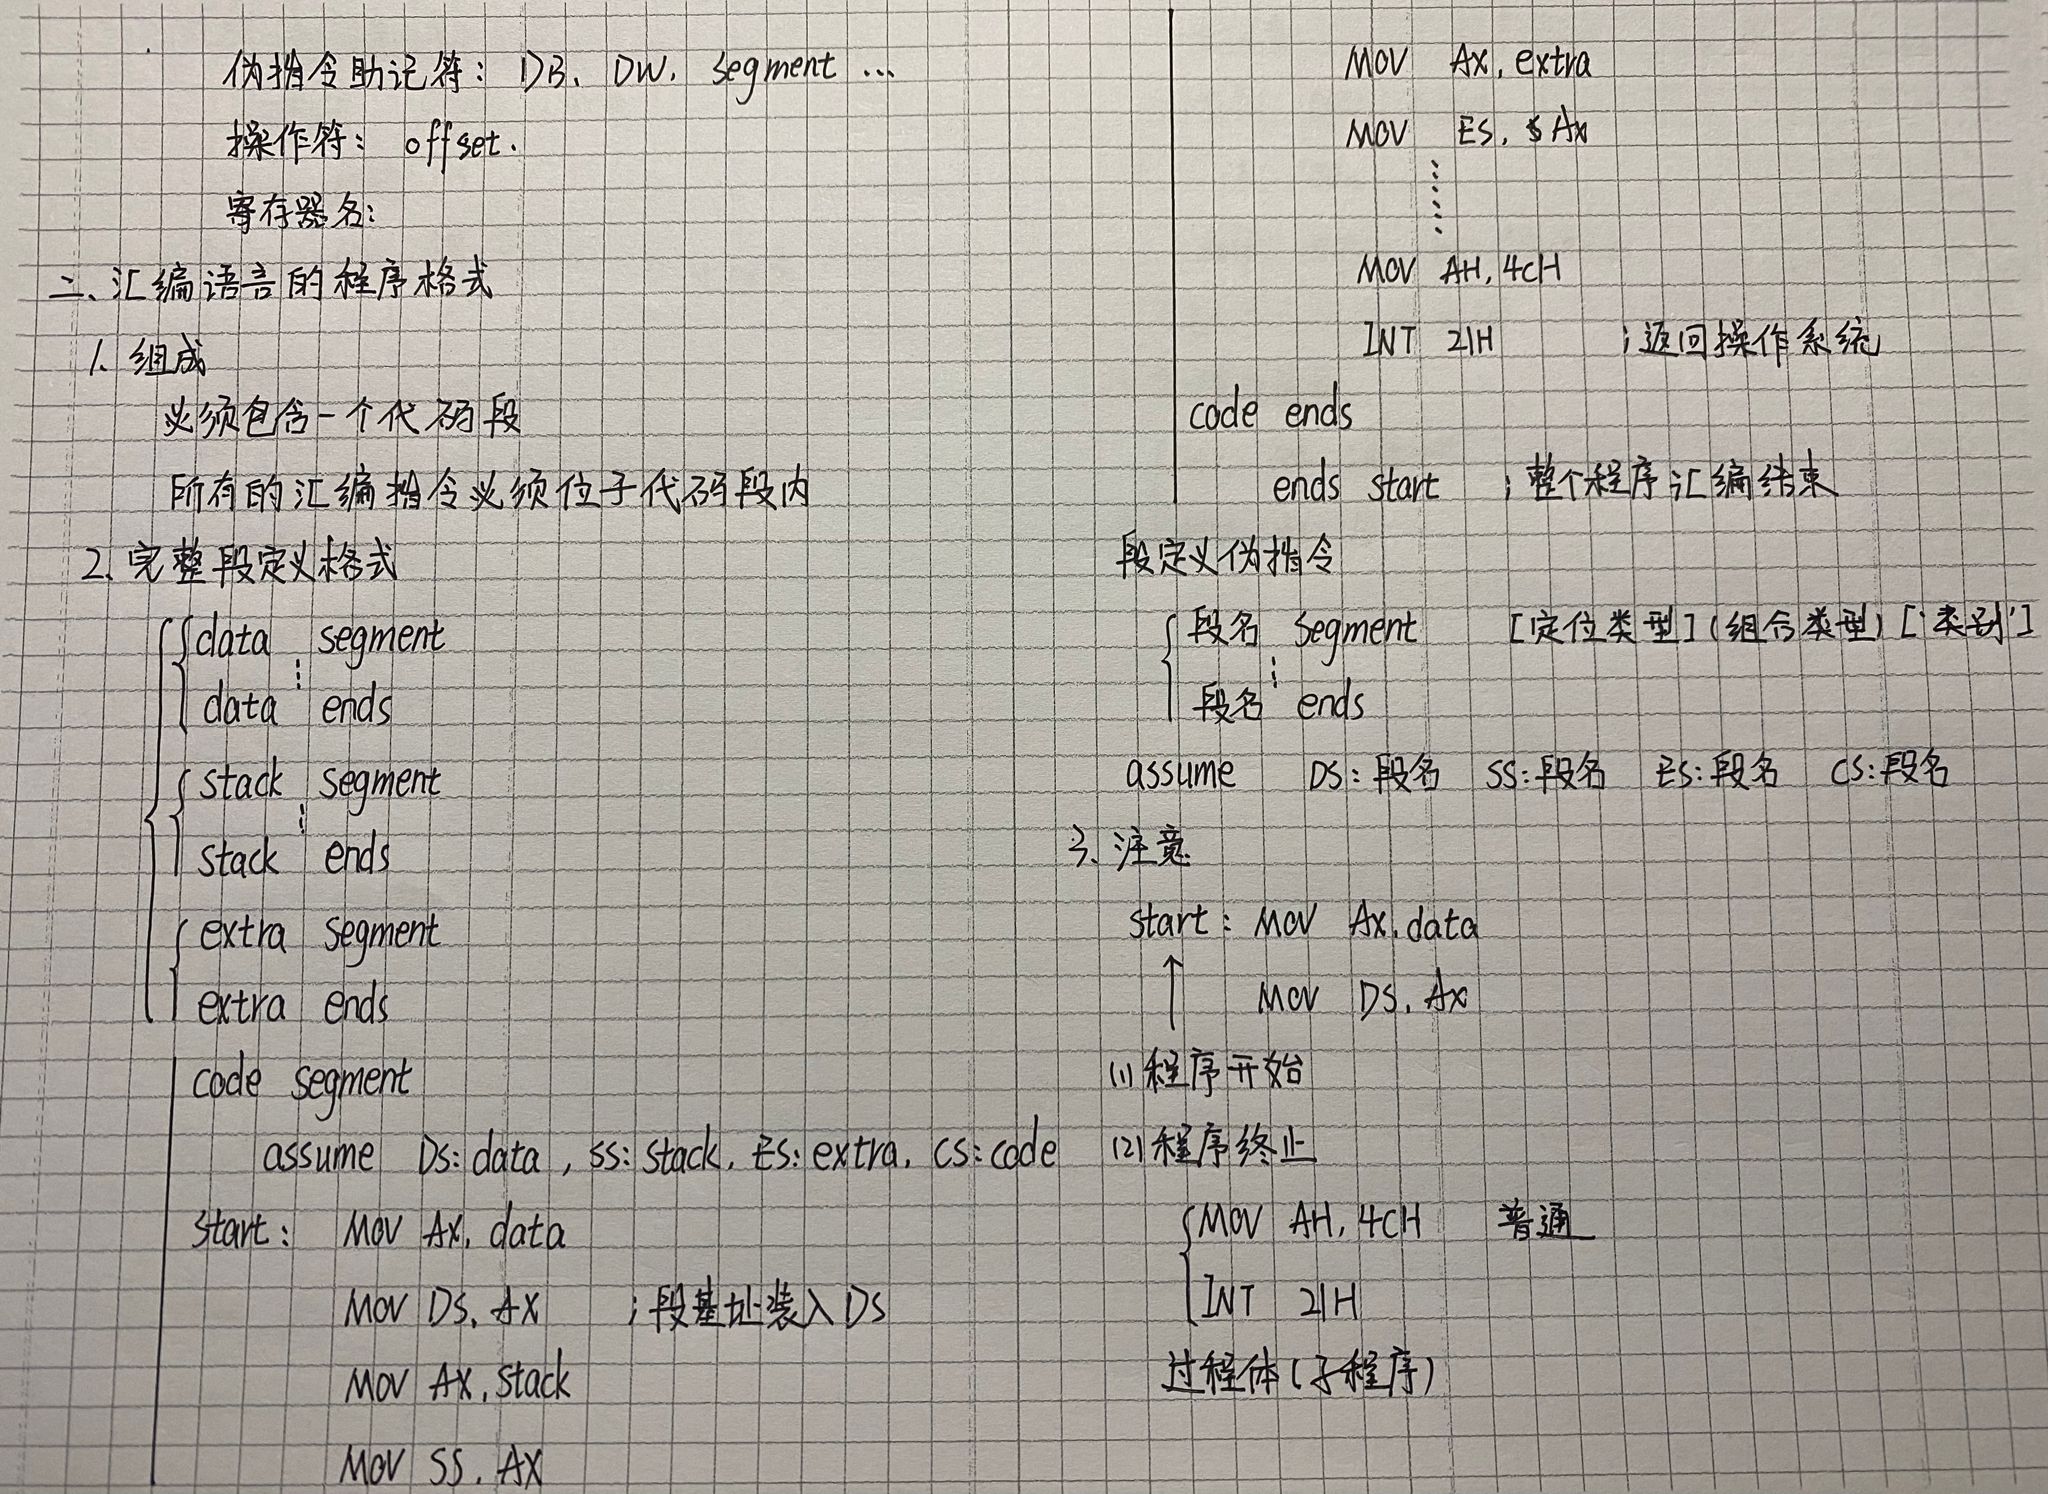 伪指令助记符: DB、DW、segment ...
操作符: offset.
寄存器名:
二、汇编语言的程序格式
1、组成
必须包含一个代码段
所有的汇编指令必须位于代码段内
2、完整段定义格式
data segment
data ends
stack segment
stack ends
extra segment
extra ends
code segment
assume DS: data, SS: stack, ES: extra, CS: code
start: MOV AX, data
MOV DS, AX ;段基址装入DS
MOV AX, stack
MOV SS, AX
MOV AX, extra
MOV ES, AX
MOV AH, 4CH
INT 21H ;返回操作系统
code ends
ends start ;整个程序汇编结束
段定义伪指令
段名 segment [定位类型] (组合类型) ['类别']
段名 ends
assume DS: 段名 SS: 段名 ES: 段名 CS: 段名
3、注意
start: MOV AX, data
↑ MOV DS, AX
(1) 程序开始
(2) 程序终止
MOV AH, 4CH 普通
INT 21H
过程体(子程序)